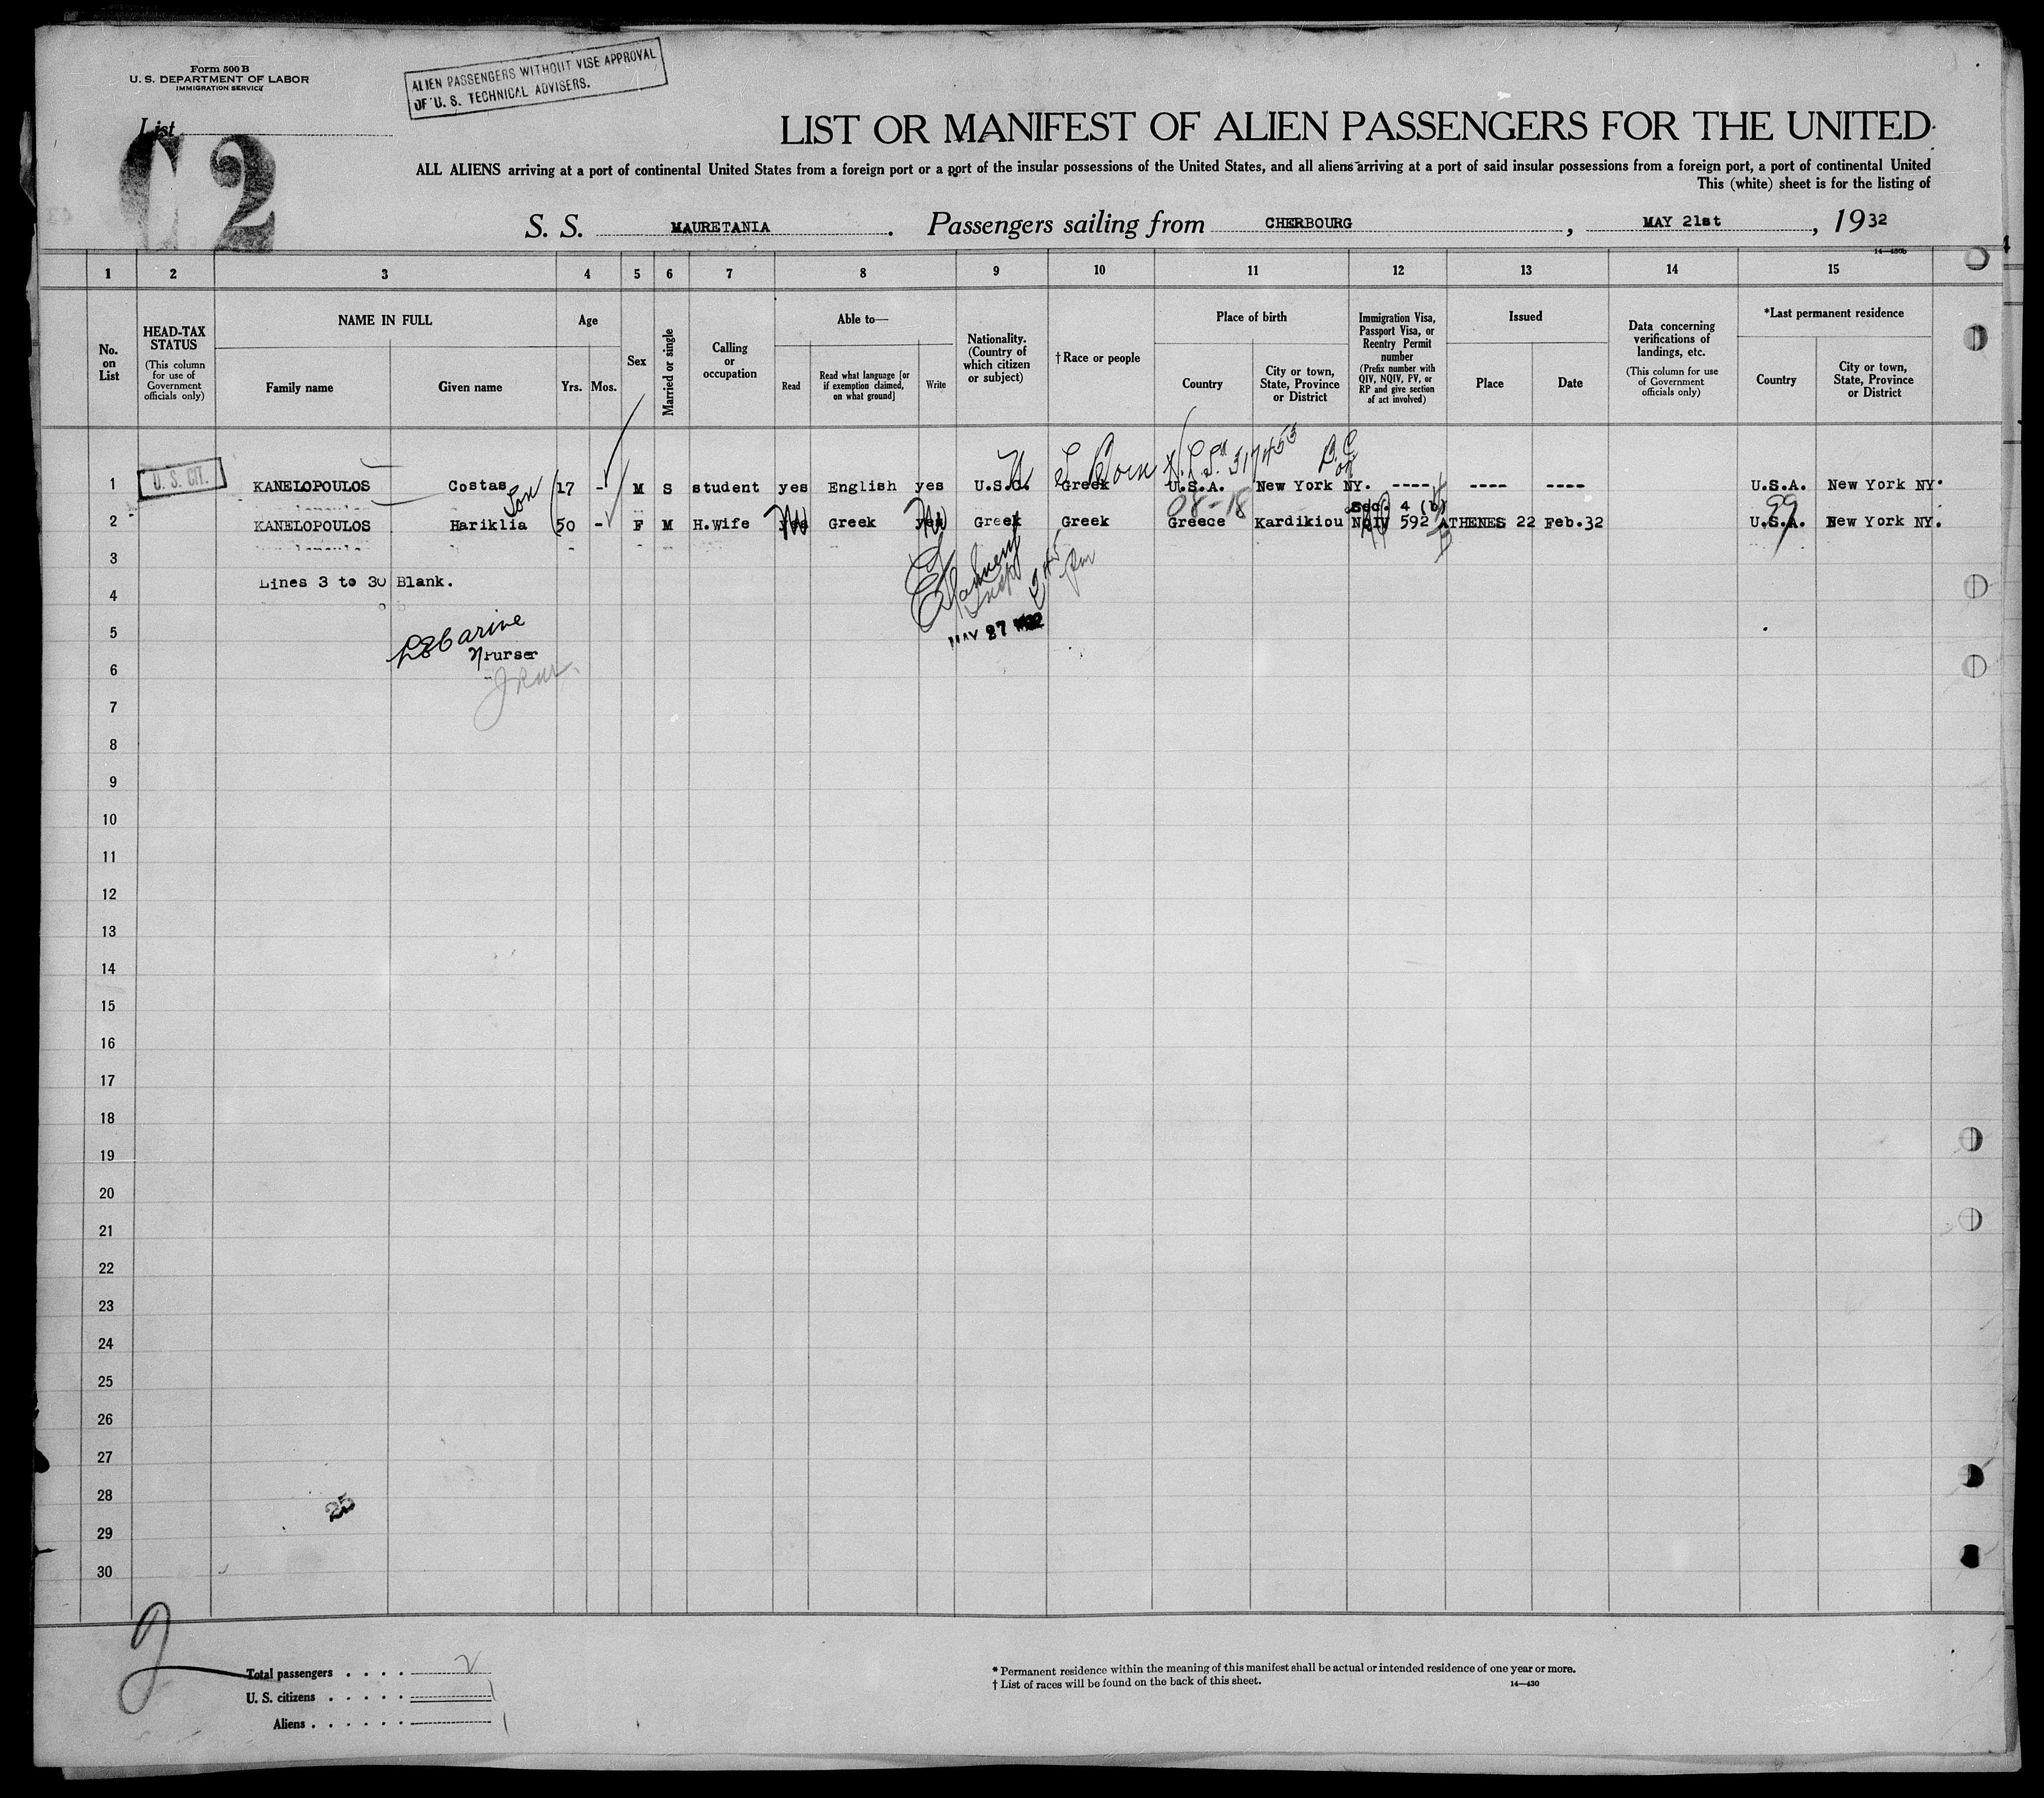 Form 500 B
U. S. DEPARTMENT OF LABOR
IMMIGRATION SERVICE
ALIEN PASSENGERS WITHOUT VISE APPROVAL
OF U. S. TECHNICAL ADVISERS.
List
C 2
LIST OR MANIFEST OF ALIEN PASSENGERS FOR THE UNITED
ALL ALIENS arriving at a port of continental United States from a foreign port or a port of the insular possessions of the United States, and all aliens arriving at a port of said insular possessions from a foreign port, a port of continental United
This (white) sheet is for the listing of
S. S. MAURETANIA. Passengers sailing from CHERBOURG, MAY 21st, 1932
14—430b
1 2 3 4 5 6 7 8 9 10 11 12 13 14 15
No. on List
HEAD-TAX STATUS
(This column for use of Government officials only)
NAME IN FULL
Family name
Given name
Age
Yrs.
Mos.
Sex
Married or single
Calling or occupation
Able to—
Read
Read what language [or if exemption claimed, on what ground]
Write
Nationality. (Country of which citizen or subject)
†Race or people
Place of birth
Country
City or town, State, Province or District
Immigration Visa, Passport Visa, or Reentry Permit number
(Prefix number with QIV, NQIV, PV, or RP and give section of act involved)
Issued
Place
Date
Data concerning verifications of landings, etc.
(This column for use of Government officials only)
*Last permanent residence
Country
City or town, State, Province or District
U S Born
1 U. S. CIT. KANELOPOULOS Costas Son 17 - M S student yes English yes U.S.C. Greek U.S.A. New York NY. ---- ---- ---- U.S.A. New York NY.
08-18
Sec. 4 (b)
2 KANELOPOULOS Hariklia 50 - F M H.Wife yes Greek yes Greek Greek Greece Kardikiou NQIV 592 ATHENES 22 Feb.32 U.S.A. New York NY.
99
3
Lines 3 to 30 Blank.
4
MAY 27 1932
5
Purser
6
7
8
9
10
11
12
13
14
15
16
17
18
19
20
21
22
23
24
25
26
27
28
25
29
30
2
Total passengers . . . . 2
U. S. citizens . . . . . 1
Aliens . . . . . . 1
* Permanent residence within the meaning of this manifest shall be actual or intended residence of one year or more.
† List of races will be found on the back of this sheet.
14—430